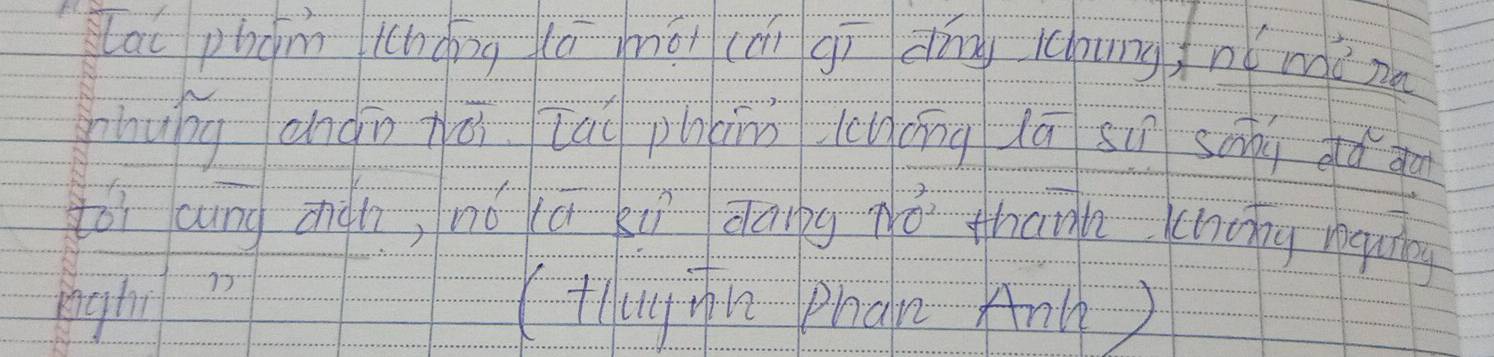 "Tác phẩm không là một cái gì đóng khung, nó mở ra
những chân trời. Tác phẩm không là sự sống đã đạt
tới cùng đích, nó là sự đang trở thành không ngừng
nghỉ"
(Huỳnh Phan Anh)